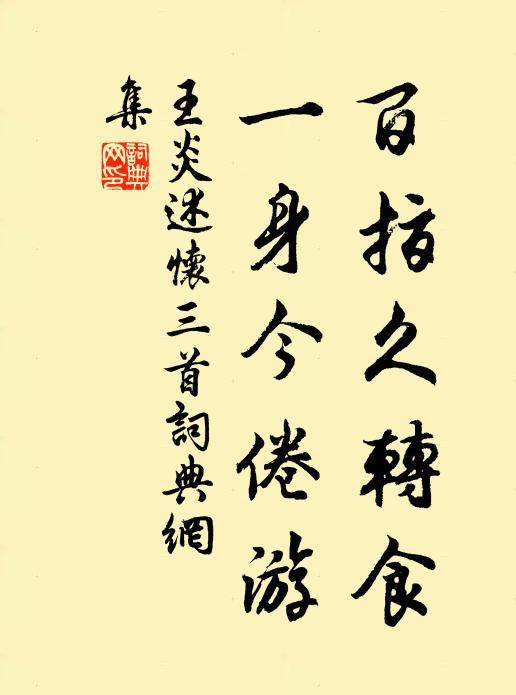 百指久轉食
一身今倦游
王炎述懷三首詞典網
集
詞典
网印